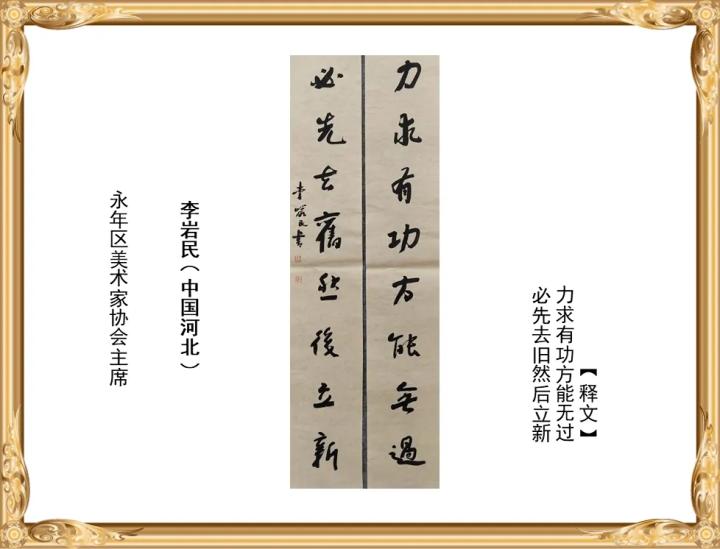 【释文】
力求有功方能无过
必先去旧然后立新
力求有功方能無過
必先去舊然後立新
李岩民書
李岩民（中国河北）
永年区美术家协会主席